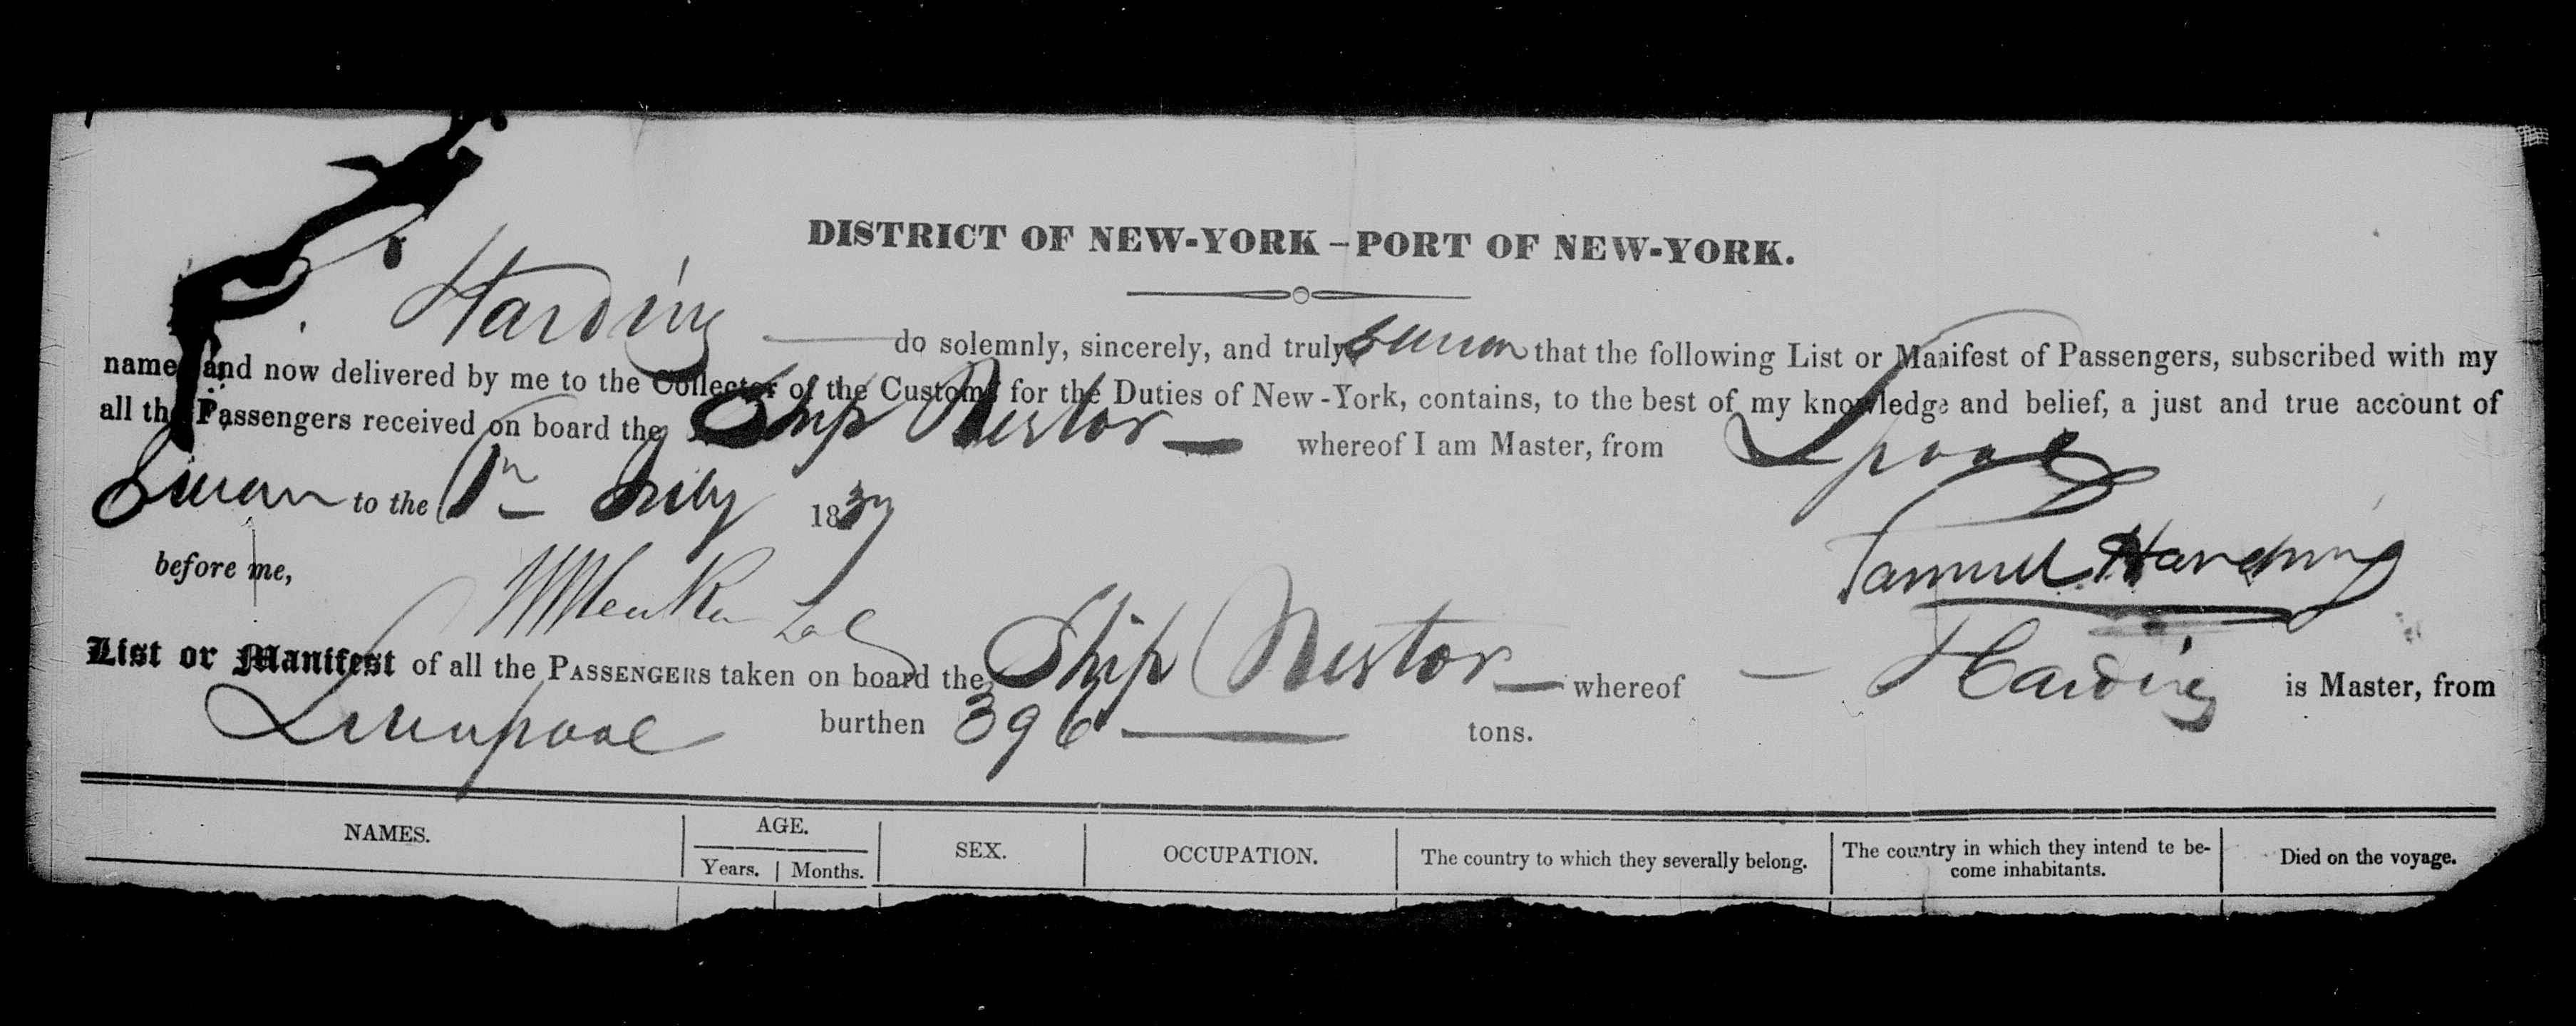 DISTRICT OF NEW-YORK - PORT OF NEW-YORK.
Harding do solemnly, sincerely, and truly swear that the following List or Manifest of Passengers, subscribed with my
name, and now delivered by me to the Collector of the Customs for the Duties of New-York, contains, to the best of my knowledge and belief, a just and true account of
all the Passengers received on board the Ship Nestor whereof I am Master, from Lpool
Sworn to the 1st July 1837
before me,
Samuel Harding
List or Manifest of all the PASSENGERS taken on board the Ship Nestor whereof Harding is Master, from
Liverpool burthen 396 tons.
NAMES. AGE. SEX. OCCUPATION. The country to which they severally belong. The country in which they intend te be-
come inhabitants. Died on the voyage.
Years. Months.